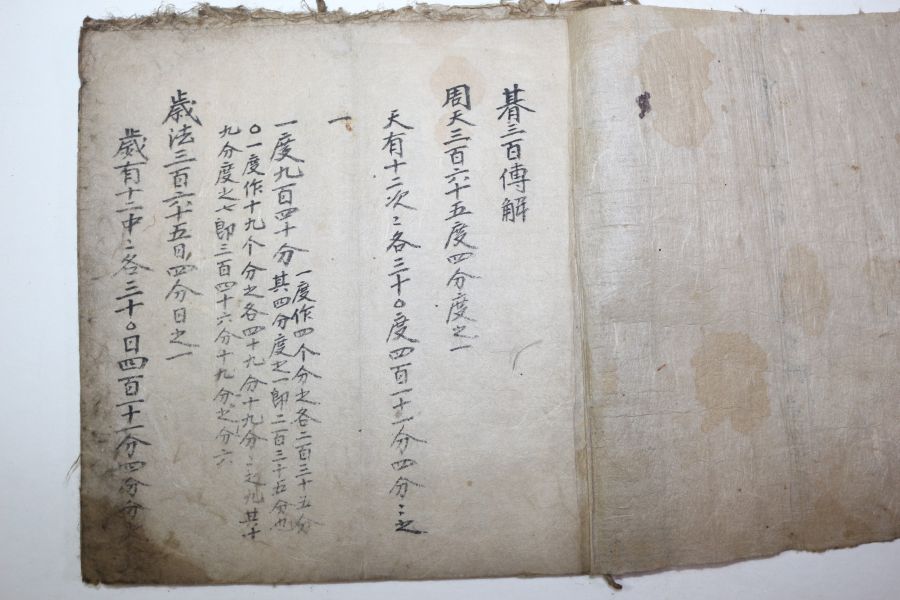 朞三百傳解
周天三百六十五度四分度之一
天有十二次〻各三十〇度四百一十一分四分〻之
一
一度九百四十分
一度作四个分之各二百三十五分
其四分度之一即二百三十五分也
〇一度作十九个分之各四十九分十九分〻之九其十
九分度之七即三百四十六分十九分之分六
歲法三百六十五日四分日之一
歲有十二中〻各三十〇日四百十一分四分分之